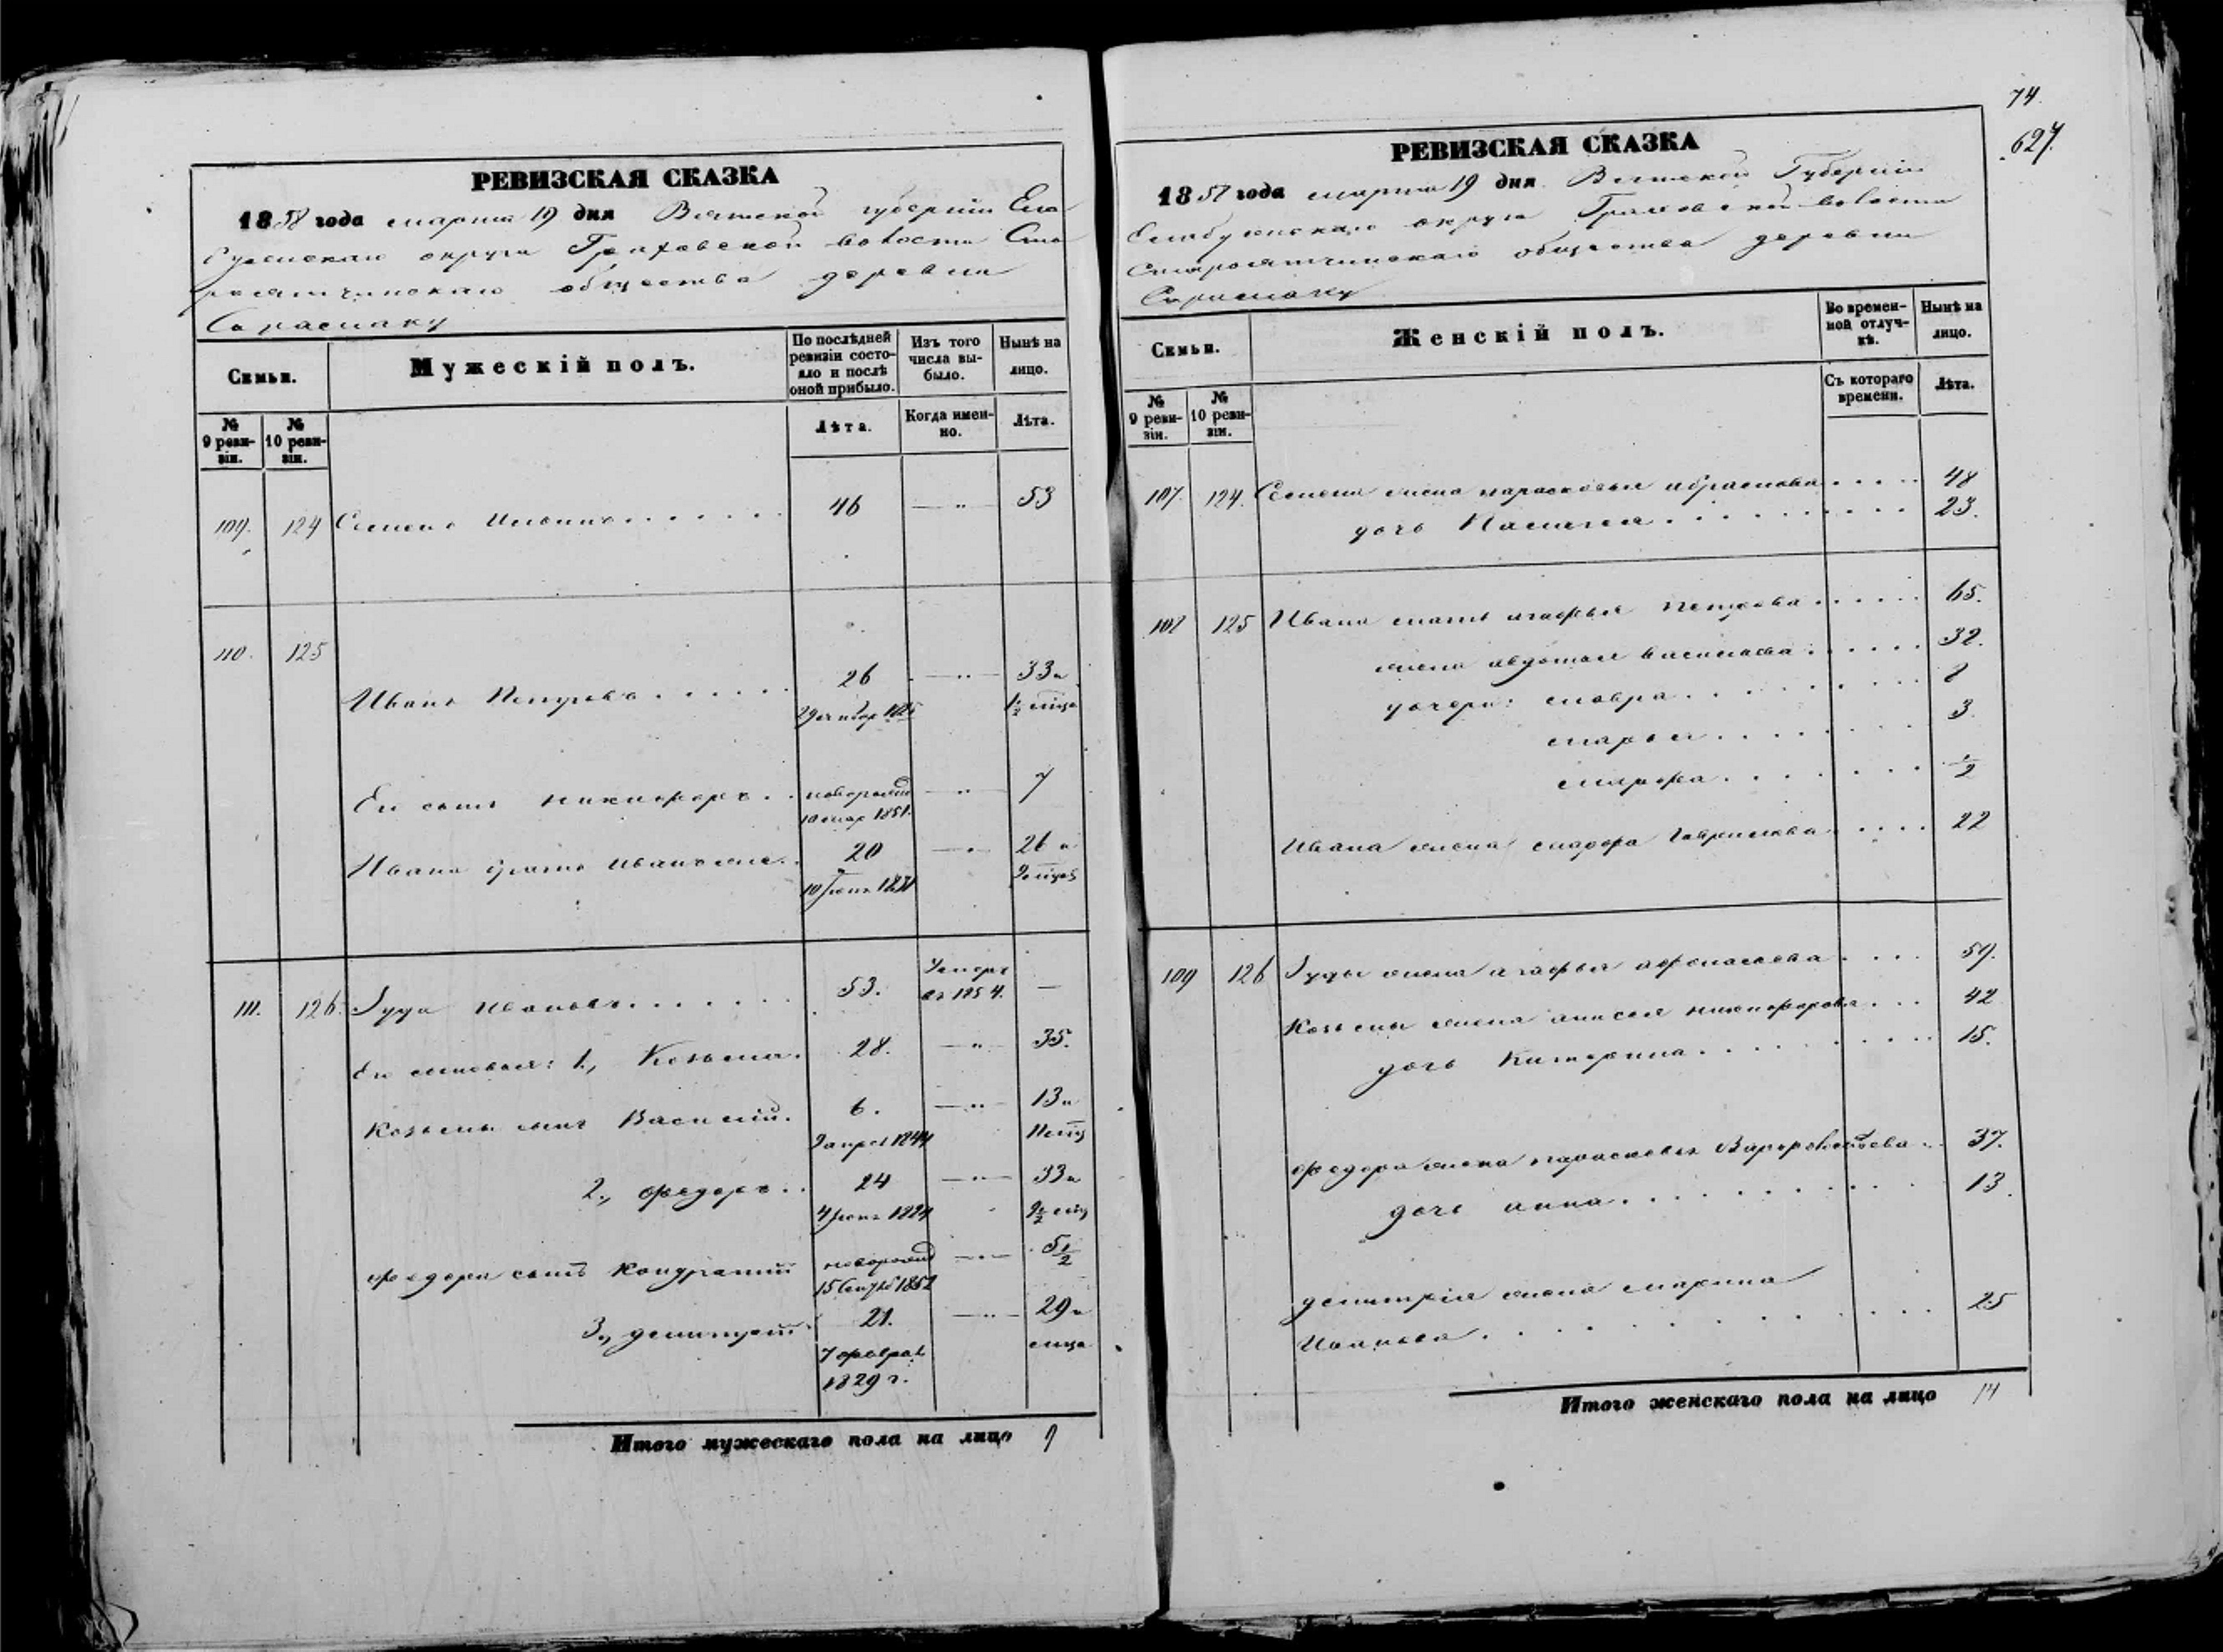 74.
627.
РЕВИЗСКАЯ СКАЗКА
1858 года марта 19 дня Вятской губерніи Ела
бужскаго округа Граховской волости Ста
роятчинскаго общества деревни
Сарамаку
Семьи.
Мужескій полъ.
По послѣдней ревизіи состояло и послѣ оной прибыло.
Изъ того числа выбыло.
Нынѣ на лицо.
№ 9 ревизіи.
№ 10 ревизіи.
Лѣта.
Когда именно.
Лѣта.
109. 124 Семенъ Ивановъ 46 — „ — 53
110. 125
Иванъ Петровъ 26 — „ — 33 и
29 1/2 мца
Ег сынъ Никифоръ новорожд — „ — 7
10 мар 1851.
Ивана братъ Иванъ же 20 — „ — 26 и
10 2 мцов
111. 126. Іуда Ивановъ 53. Умеръ
въ 1854. —
Ег сыновья: 1., Козьма 28. — „ — 35.
Козьмы сынъ Василій. 6. — „ — 13 и
9 апрел 1844 11 мц
2., Федоръ 24 — „ — 33 и
4 1824 9 1/2 мц
Федора сынъ Кондратій новорожд — „ — 5 1/2
15 Сентяб 1852
3., Дмитрій 21. — „ — 29 и
7 феврал мца
1829 г.
Итого мужескаго пола на лицо 9
РЕВИЗСКАЯ СКАЗКА
1858 года марта 19 дня Вятской Губерніи
Елабужскаго округа Граховской волости
Староятчинскаго общества деревни
Сарамаку
Семьи.
Женскій полъ.
Во временной отлучкѣ.
Нынѣ на лицо.
№ 9 ревизіи.
№ 10 ревизіи.
Съ котораго времени.
Лѣта.
107. 124. Семена жена Парасковья Абрамова 48
дочь Пелагея 23.
108 125 Ивана мать Агафья Петрова 65.
жена Авдотья Васильева 32.
дочери: Мавра 8
Марья 3.
Марфа 1/2
Ивана жена Гаврилова 22
109 126 Іуды жена Агафья Афонасьева 59.
Козьмы жена Анисья Никифорова 42
дочь Катерина 15.
Федора жена Парасковья Варфоломеева 37.
дочь Анна 13.
Дмитрія жена Марина
Иванова 25
Итого женскаго пола на лицо 14